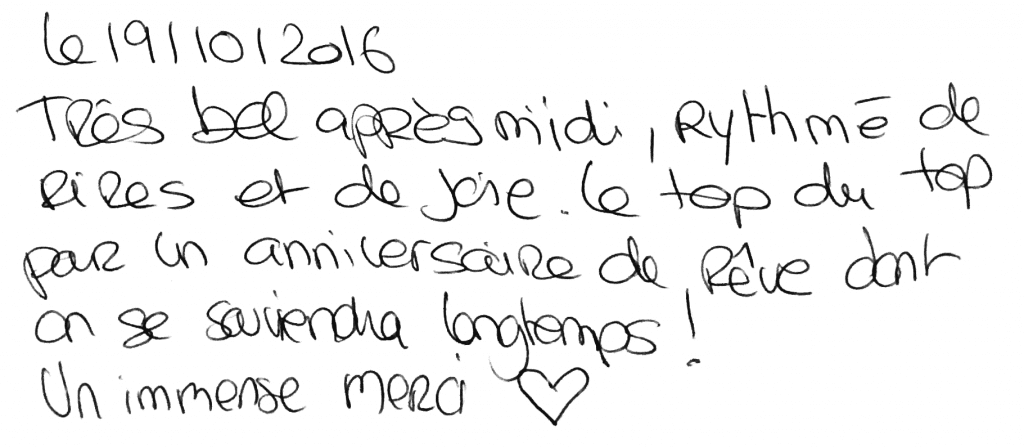 Le 19/10/2016
Très bel après midi, Rythmé de
Rires et de joie. Le top du top
par un anniversaire de Rêve dont
on se souviendra longtemps !
Un immense merci ♡